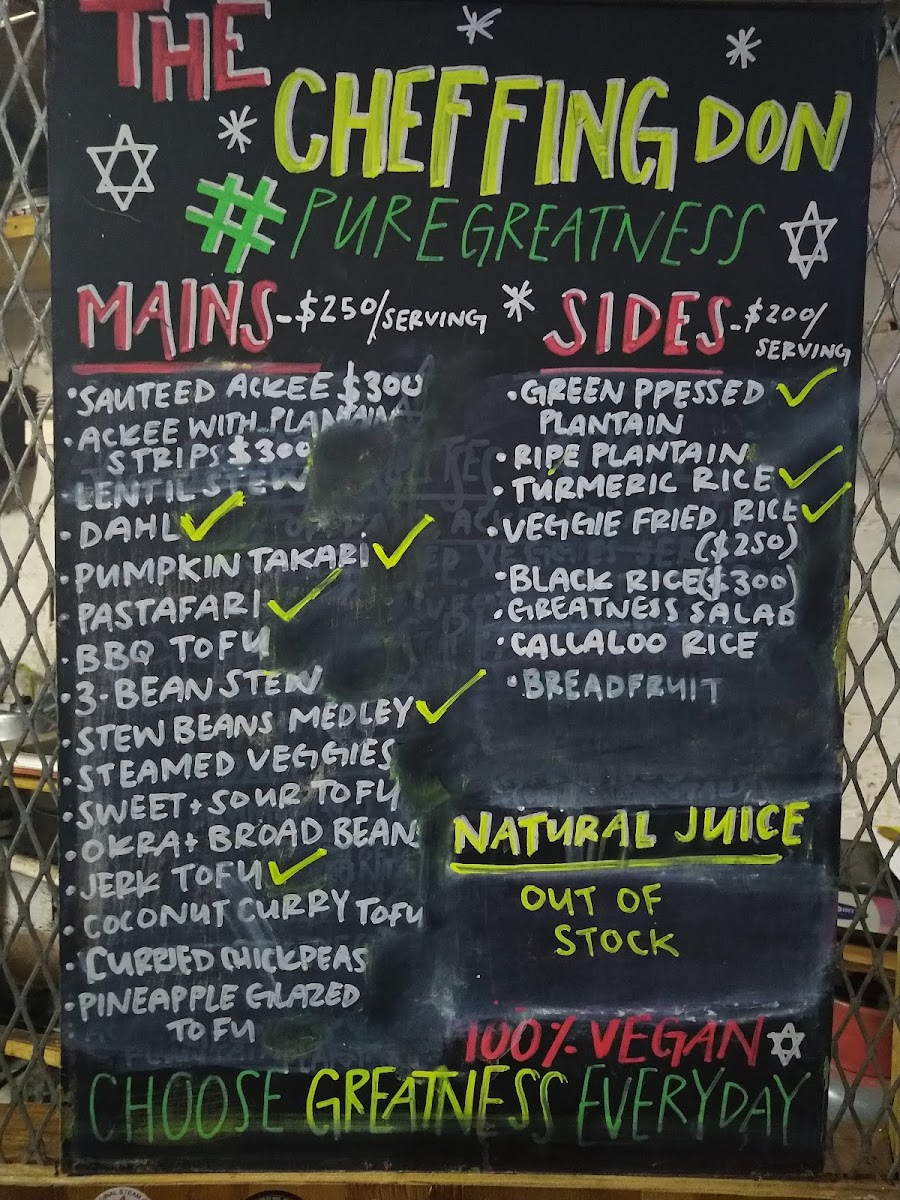 THE
CHEFFING DON
#PUREGREATNESS
MAINS -$250/SERVING
• SAUTEED ACKEE $300
• ACKEE WITH PLANTAIN
STRIPS $300
LENTIL STEW
• DAHL ✓
• PUMPKIN TAKARI ✓
• PASTAFARI ✓
• BBQ TOFU
• 3-BEAN STEW
• STEW BEANS MEDLEY ✓
• STEAMED VEGGIES
• SWEET + SOUR TOFU
• OKRA + BROAD BEAN
• JERK TOFU ✓
• COCONUT CURRY TOFU
• CURRIED CHICKPEAS
• PINEAPPLE GLAZED
TOFU
* SIDES -$200/
SERVING
• GREEN PPESSED ✓
PLANTAIN
• RIPE PLANTAIN
• TURMERIC RICE ✓
• VEGGIE FRIED RICE ✓
($250)
• BLACK RICE ($300)
• GREATNESS SALAD
• CALLALOO RICE
• BREADFRUIT
NATURAL JUICE
OUT OF
STOCK
100% VEGAN
CHOOSE GREATNESS EVERYDAY